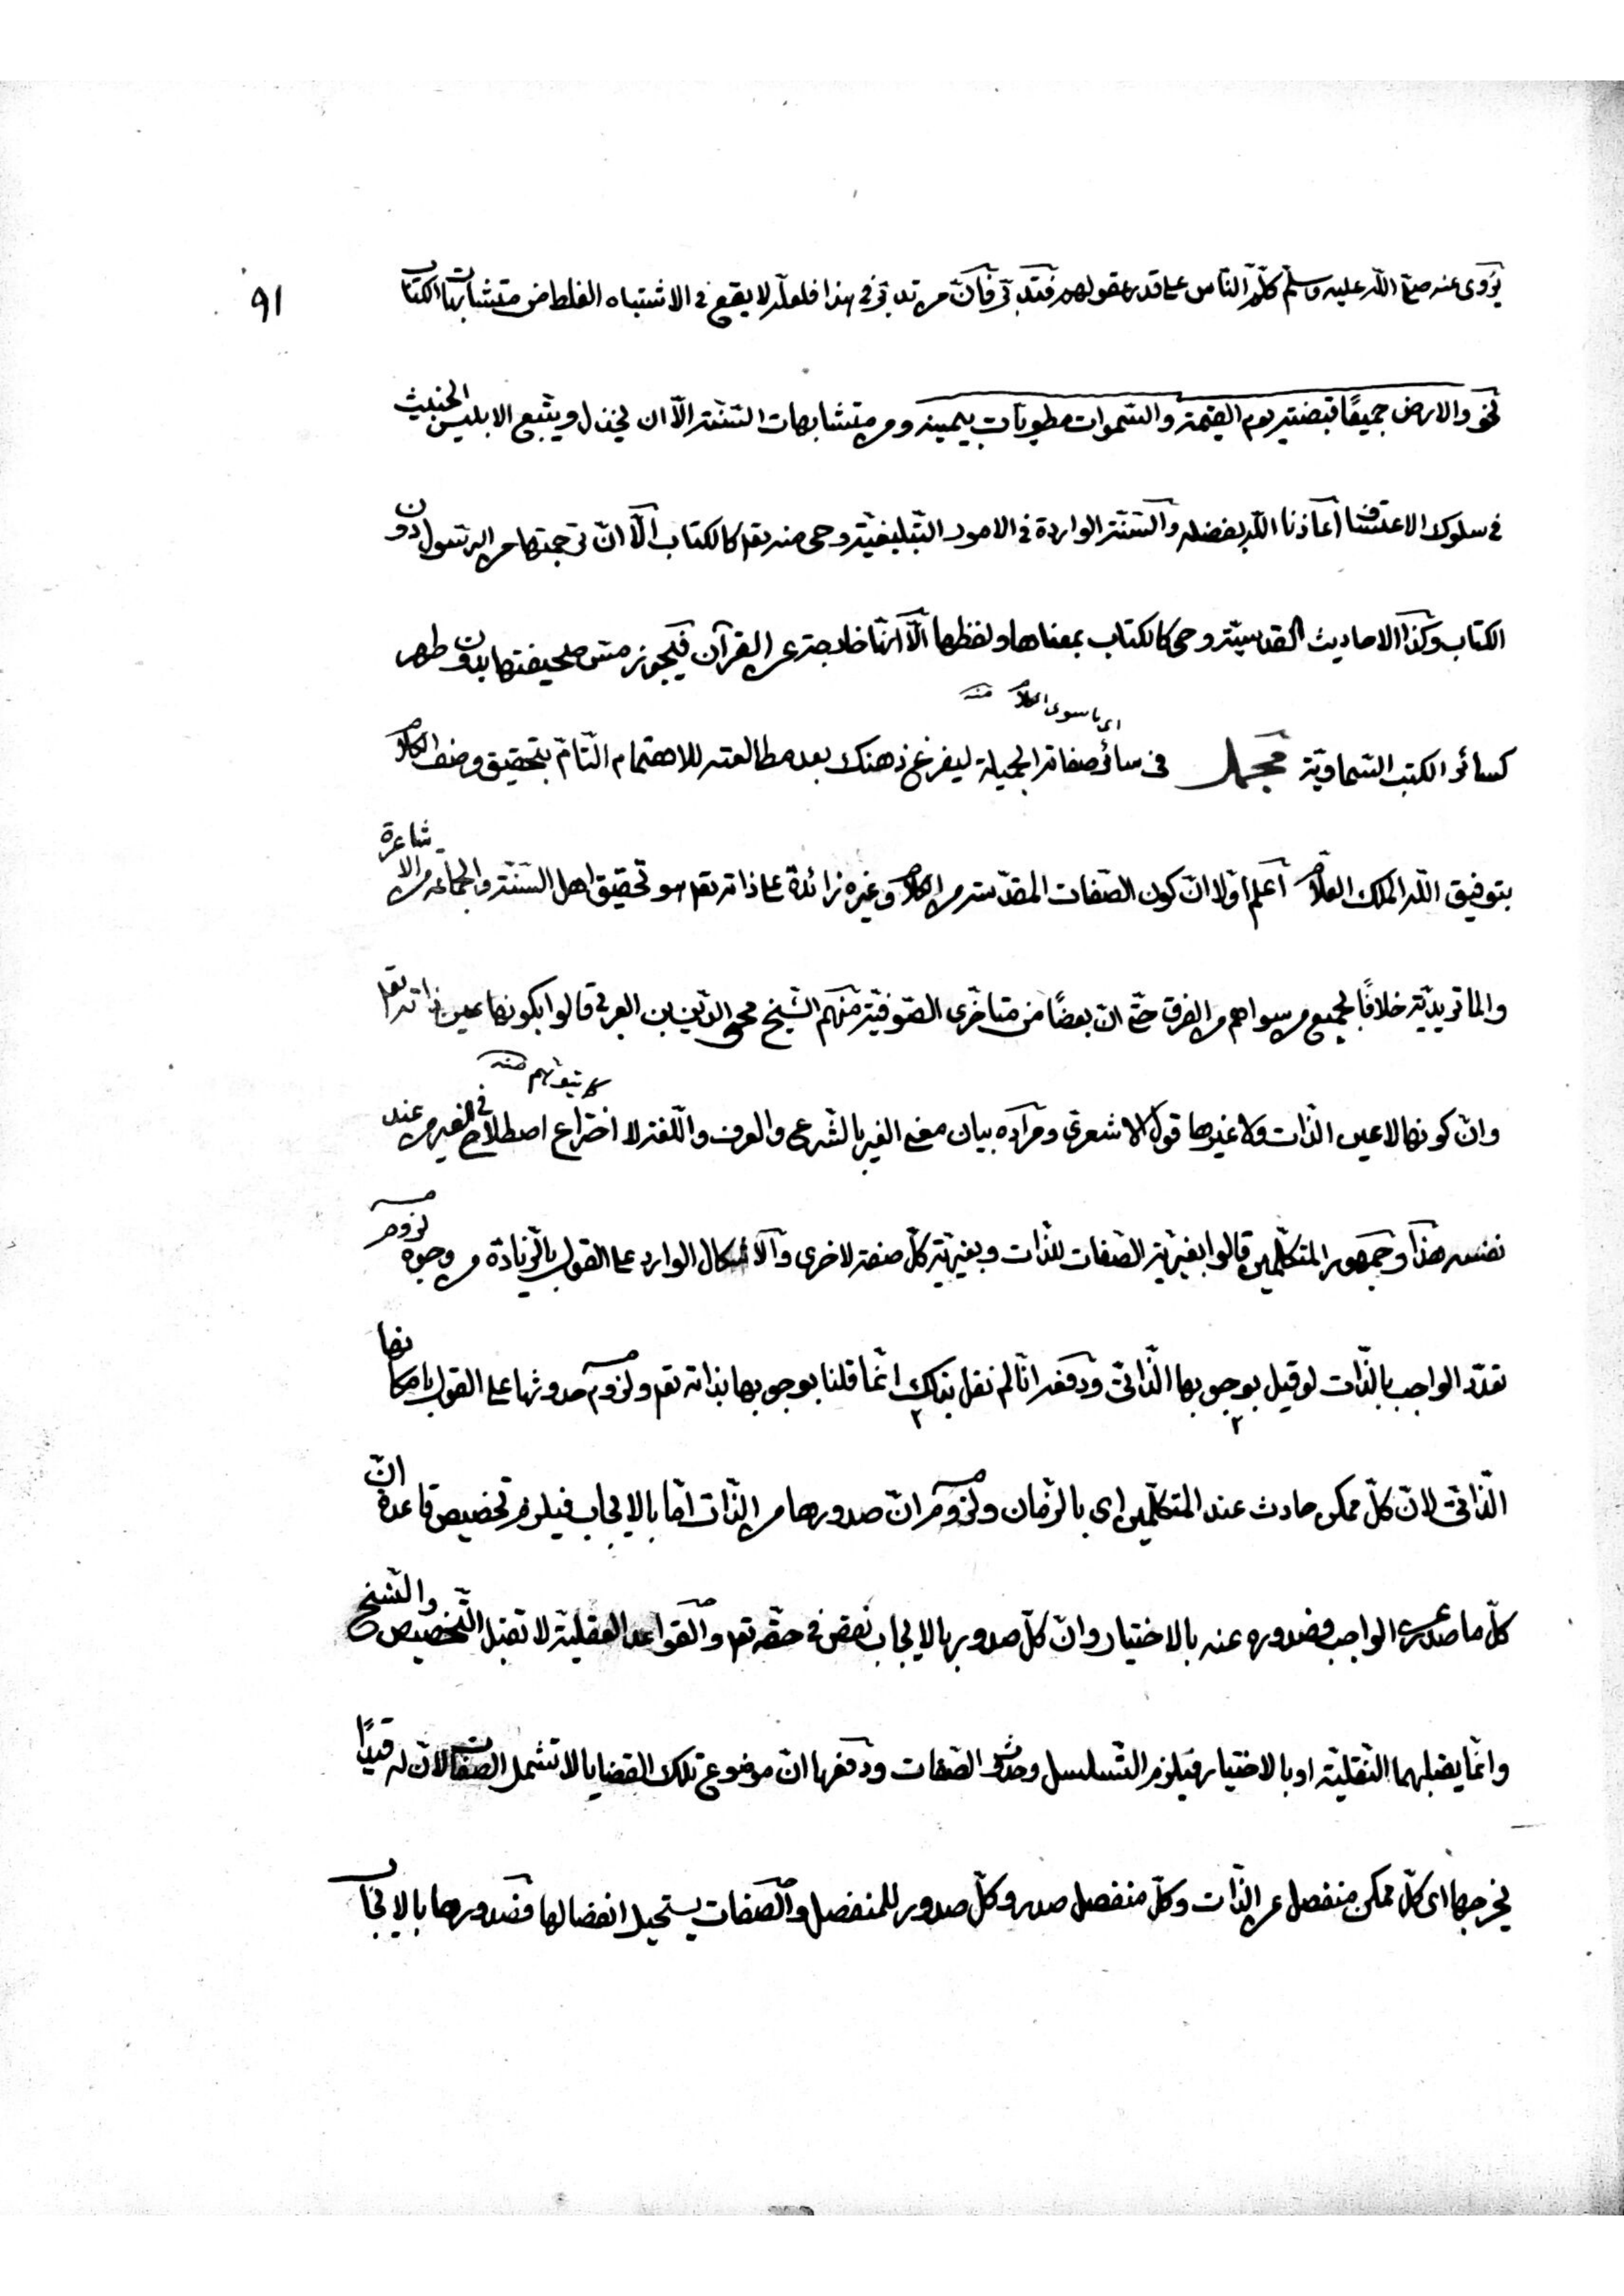 ٩١
يروى عنه صلى الله عليه وسلم كلّم الناس على قدر عقولهم فتدبّر فانّ من تدبّر في هذا فلعلّه لا يقع في الاشتباه الغلط من متشابهات الكتاب
نحو والارض جميعًا قبضته يوم القيمة والسّموات مطويّات بيمينه ومن متشابهات السّنّة الّا ان يخذل ويتّبع الابليس الخبيث
في سلوك الاعتساف اعاذنا الله بفضله والسّنّة الواردة في الامور التّبليغيّة وحى منه تعه كالكتاب الّا انّ ترجمتها من الرّسول دون
الكتاب وكذا الاحاديث القدسيّة وحى كالكتاب بمعناها ولفظها الّا انّها خارجة عن القرآن فيجوز مسّ صحيفتها بدون طهر
اى ما سوى الكلام منه
كسائر الكتب السّماويّة مجمل في سائر صفاته الجميلة ليفرغ ذهنك بعد مطالعته للاهتمام التّامّ بتحقيق وصف الكلام
بتوفيق الله الملك العلّام اعلم اوّلا انّ كون الصّفات المقدّسة من الكلام وغيره زائدة على ذاته تعه هو تحقيق اهل السّنّة والجماعة من الاشاعرة
والماتريديّة خلافًا لجميع من سواهم من الفرق حتّى انّ بعضًا من متأخّرى الصّوفيّة منهم الشّيخ محى الدّين بن العربي قالوا بكونها عين ذاته تعه
كما يتوهم منه
وانّ كونها لا عين الذّات ولا غيرها قول الاشعرى ومراده بيان معنى الغير بالشّرعى والعرف واللّغة لا اختراع اصطلاح في الغير من عند
نفسه هذا وجمهور المتكلّمين قالوا بغيريّة الصّفات للذّات وبغيريّة كلّ صفة لاخرى والاشكال الوارد على القول بالزّيادة من وجوه لزوم
تعدّد الواجب بالذّات لو قيل بوجوبها الذّاتى ودفعه انّا لم نقل بذلك انّما قلنا بوجوبها بذاته تعه ولزوم حدوثها على القول بامكانها
الذّاتى لانّ كلّ ممكن حادث عند المتكلّمين اى بالزّمان ولزوم انّ صدورها من الذّات امّا بالايجاب فيلزم تخصيص قاعدة انّ
كلّ ما صدر عن الواجب فصدوره عنه بالاختيار وانّ كلّ صدور بالايجاب نقص في حقّه تعه والقواعد العقليّة لا تقبل التّخصيص والنّسخ
وانّما يقبلهما النّقليّة او بالاختيار فيلزم التّسلسل وحدوث الصّفات ودفعها انّ موضوع تلك القضايا لا تشمل الصّفات لانّ له قيدًا
يخرجها اى كلّ ممكن منفصل عن الذّات وكلّ منفصل صدر وكلّ صدور للمنفصل والصّفات يستحيل انفصالها فصدورها بالايجاب